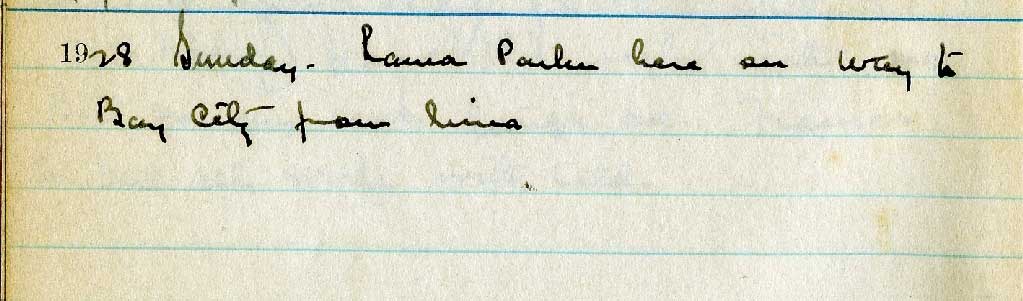 1928 Sunday. Laura Parker here on way to
Bay City from Lima